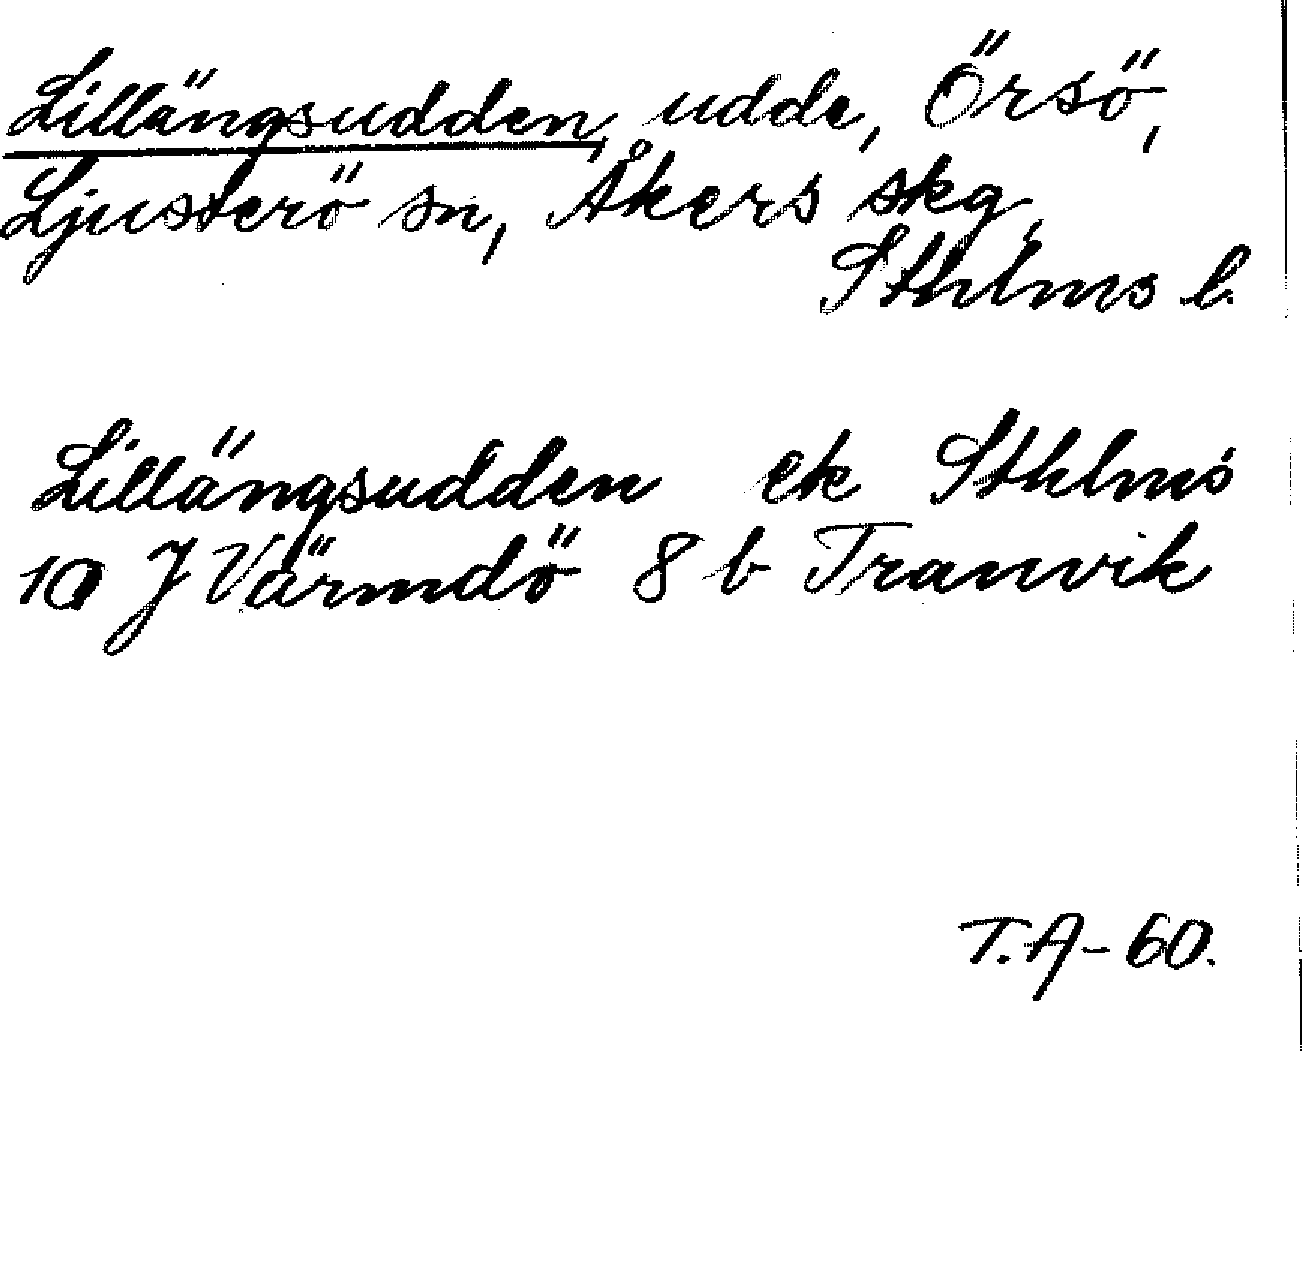 Lillängsudden, udde, Örsö,
Ljusterö sn, Åkers skg,
Sthlms l.
Lillängsudden ek Sthlms
10 J Värmdö 8 b Tranvik
T.A-60.